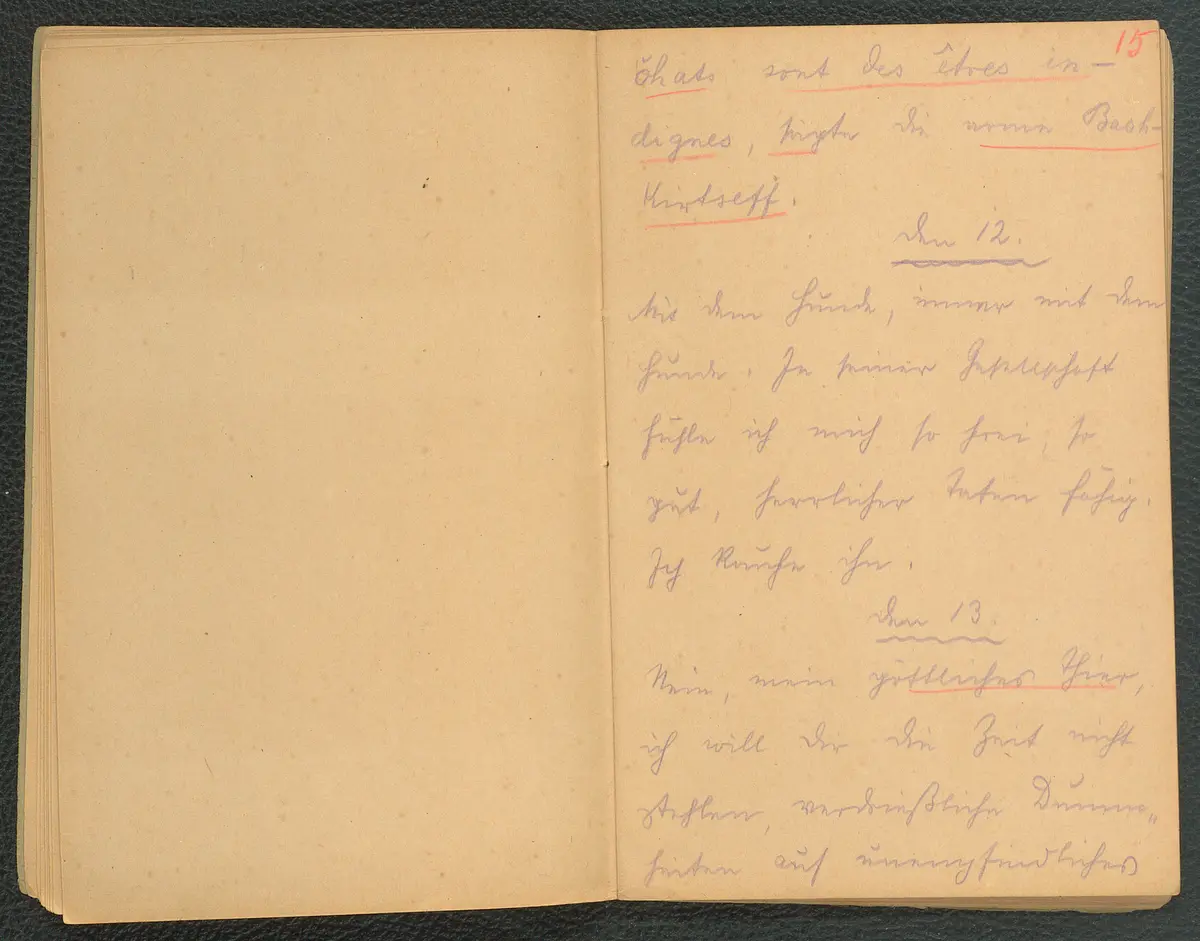 15
chats sont des êtres in-
dignes, sagte die arme Bash-
Kirtseff.
Den 12.
Mit dem Hunde, immer mit dem
Hunde. In seiner Gesellschaft
fühle ich mich so frei, so
gut, herrlicher Taten fähig.
Ich ihn.
Den 13.
Nein, mein göttliches Thier,
ich will dir die Zeit nicht
stehlen, verdrießliche Dumm-
heiten auf unempfindliches